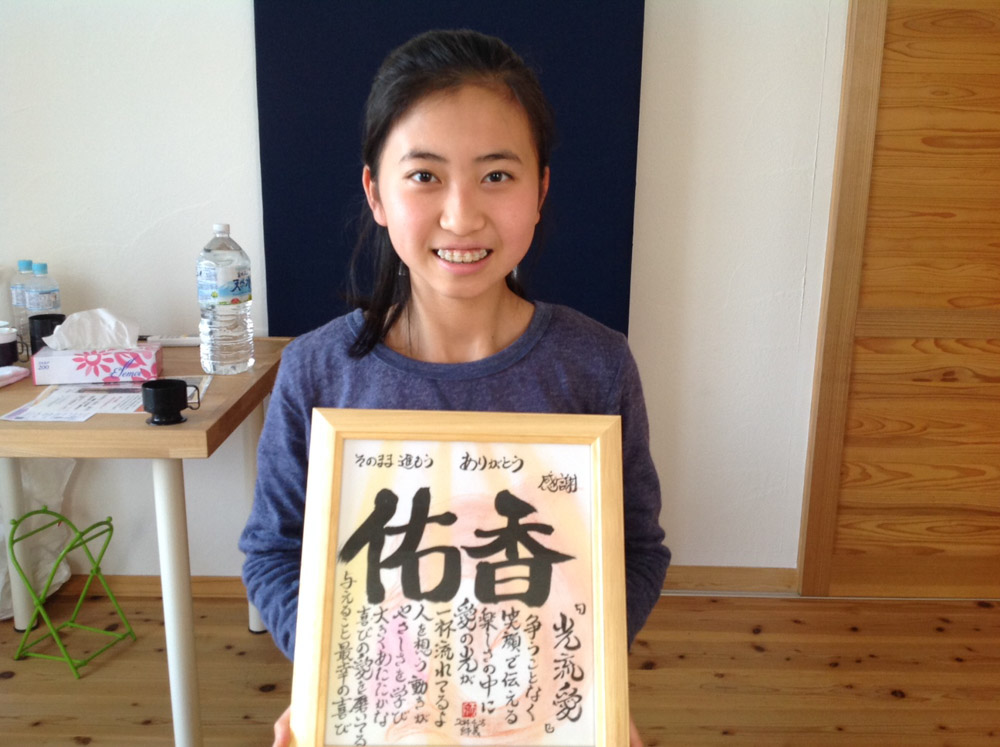 そのまま進もう ありがとう
感謝
佑香
『光流愛』
争うことなく
笑顔で伝える
楽しさの中に
愛の光が
一杯流れてるよ
人を想う動きが
やさしさを学び
大きくあたたかな
喜びの愛を磨いてる
与えること最幸の喜び